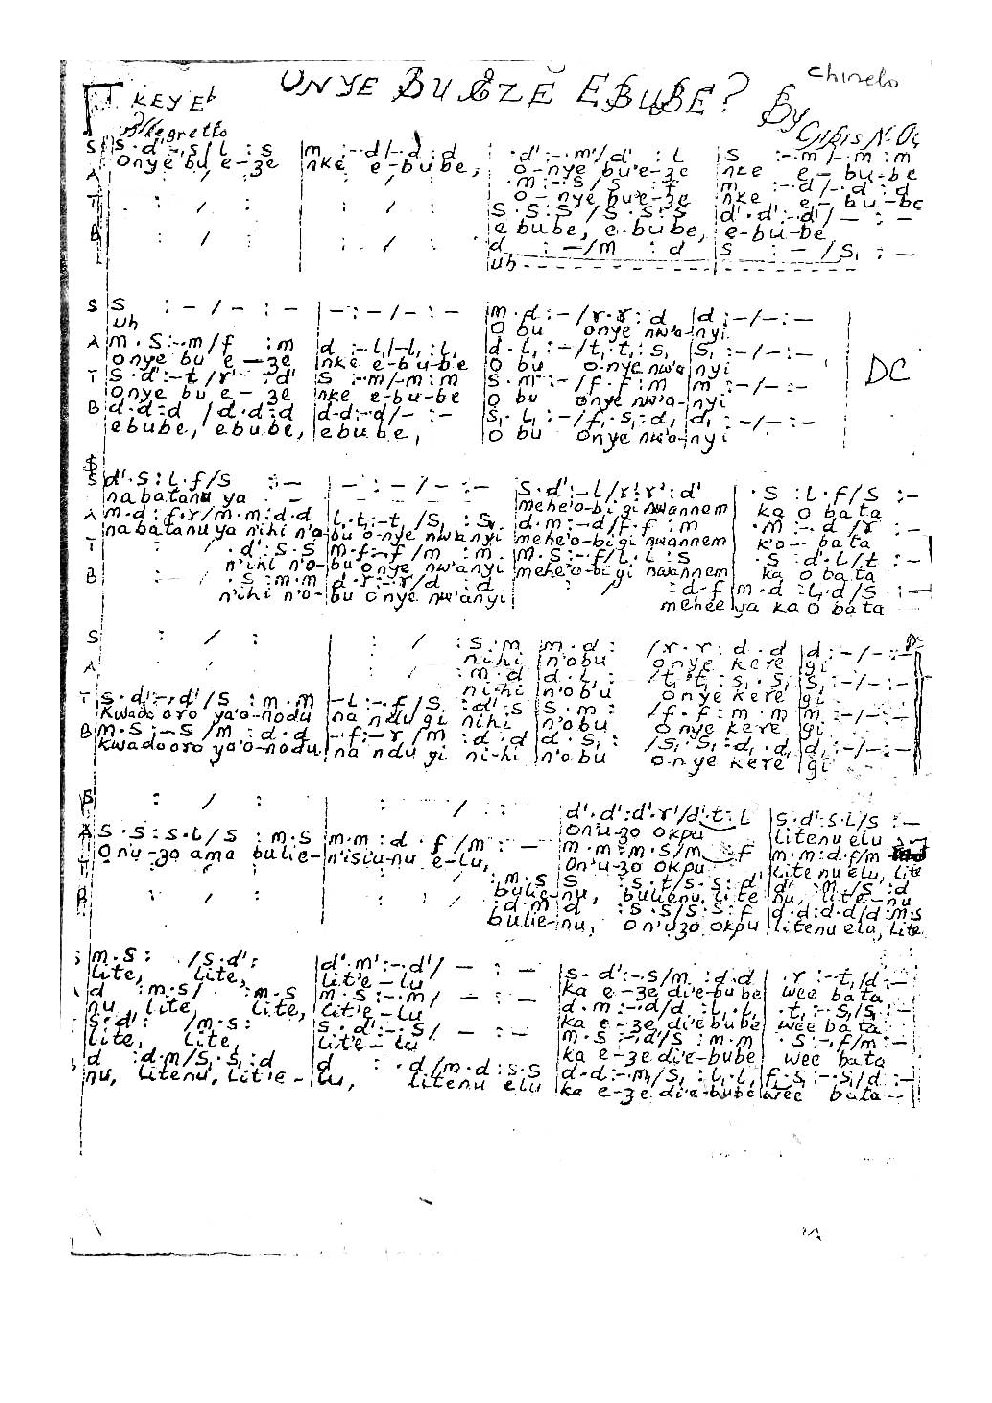 ONYE BU EZE EBUBE?
Chinelo
KEY Eb
Allegretto
By
S S . d' :-. s / l : s | m :-. d /-. d : d | . d' :-. m' / d' : l | s :-. m /-. m : m
Onye bu e-ze | nke e-bube, | o-nye bu'e-ze | nke e-bu-be
A : / : | : / : | . m :-. s / s : f | m :-. d /-. d : d
o-nye bu'e-ze | nke e-bu-be
T : / : | : / : | s . s : s / s . s : s | d' . d' :-. d' / - : -
e bube, e bube, | e-bu-be
B : / : | : / : | d : - / m : d | s : - / s, : -
uh
S s : - / - : - | - : - / - : - | m . d : - / r . r : d | d : - / - : -
uh | O bu onye nw'a-nyi
A m . s :-. m / f : m | d :-. l, /-. l, : l, | d . l, : - / t, . t, : s, | s, : - / - : -
onye bu e-ze | nke e-bu-be | O bu onye nw'a-nyi
DC
T s . d' :-. t / r' : d' | s :-. m /-. m : m | s . m : - / f . f : m | m : - / - : -
Onye bu e-ze | nke e-bu-be | O bu onye nw'a-nyi
B d . d : d / d . d : d | d . d :-. d / - : - | s, . l, : - / f, . s, : d, | d, : - / - : -
ebube, ebube, | ebube, | O bu onye nw'a-nyi
S d' . s : l . f / s : - | - : - / - : - | s . d' :-. l / r' . r' : d' | . s : l . f / s : -
na batanu ya | mehe'o-bi gi nwannem | ka O ba ta
A m . d : f . r / m . m : d . d | l, . t, :-. t, / s, : s, | d . m :-. d / f . f : m | . m :-. d / r
na batanu ya n'ihi n'o- | bu o-nye nw'anyi | mehe'o-bi gi nwannem | k'o-- ba ta
T : / . d' : s . s | m . f :-. f / m : m | m . s :-. f / l . l : s | . s : d' . l / t : -
n'ihi n'o- | bu onye nw'anyi | mehe'o-bi gi nwannem | ka O bata
B : / . s : m . m | d . r :-. r / d : d | : / : d . f | m . d : l, . d / s : -
n'ihi n'o- | bu onye nw'anyi | mehee ya ka O bata
S : / : | : / : s . m | m . d : / r . r : d . d | d : - / - : -
nihi | n'obu onye kere gi
A : / : | : / : m . d | d . l, : / t, . t, : s, . s, | s, : - / - : -
ni-hi | n'obu onye kere gi
T s . d' :-. d' / s : m . m | - l :-. f / s : d' . s | s . m : / f . f : m . m | m : - / - : -
Kwado oro ya'o-nodu | na ndu gi nihi | n'obu onye kere gi
B m . s :-. s / m : d . d | - f :-. r / m : d . d | d . s, : / s, . s, : d, . d, | d, : - / - : -
Kwadooro ya'o-nodu | na ndu gi ni-hi | n'o bu onye kere gi
S : / : | : / : | d' . d' : d' . r' / d' . t : l | s . d' : s . l / s : -
on'u-zo okpu | litenu elu
A s . s : s . l / s : m . s | m . m : d . f / m : - | m . m : m . s / m : f | m . m : d . f / m
On'u-zo ama bulie- | n'isi'u-nu e-lu, | on'u-zo okpu | litenu elu, lite
T : / : | : / : m . s | s : s . t / s . s : d' | d' : m / s : d
bulie-nu, bulienu lite | nu, lite-nu
B : / : | : / : d . m | d : s . s / s . s : f | d . d : d . d / d : m . s
bulie-nu, on'uzo okpu | litenu elu, lite
m . s : / s . d' : | d' . m' :-. d' / - : - | s . d' :-. s / m : d . d | . r :-. t, / d : -
lite, lite, | lit'e-lu | ka e-ze di'e-bube | wee bata
d : m . s / : m . s | m . s :-. m / - : - | d . m :-. d / d : l, . l, | . t, :-. s, / s, : -
nu, lite lite, | lit'e-lu | ka e-ze di'e bube | wee ba ta
s . d' : / m . s : | s . d' :-. s / - : - | m . s :-. d' / s : m . m | . s :-. f / m : -
lite, lite, | lit'e-lu | ka e-ze di'e-bube | wee bata
d : d . m / s, . s, : d | d : . d / m . d : s . s | d . d :-. m / s, : l, . l, | f, . s, :-. s, / d : -
nu, litenu, lit'e- | lu, litenu elu | ka e-ze di'e-bube wee bata